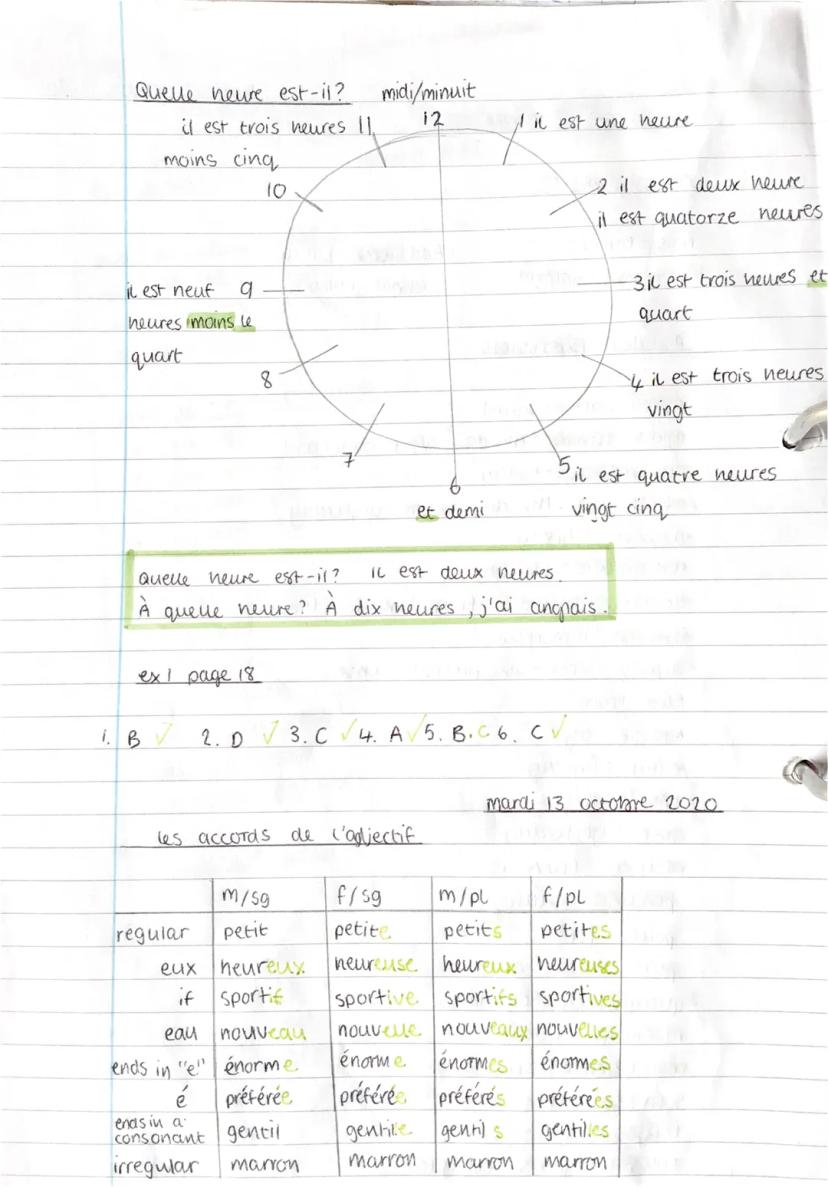 Quelle heure est-il? midi/minuit
12
il est trois heures 11
moins cinq
1 il est une heure
10
2 il est deux heure
il est quatorze heures
il est neuf 9
heures moins le
quart
3 il est trois heures et
quart
8
4 il est trois heures
vingt
7
6
et demi
5 il est quatre heures
vingt cinq
Quelle heure est-il? il est deux heures.
À quelle heure? À dix heures, j'ai angnais.
ex 1 page 18
1. B ✓ 2. D ✓ 3. C ✓ 4. A ✓ 5. B. C 6. C ✓
mardi 13 octobre 2020
les accords de l'adjectif
m/sg f/sg m/pl f/pl
regular petit petite petits petites
eux heureux heureuse heureux heureuses
if sportif sportive sportifs sportives
eau nouveau nouvelle nouveaux nouvelles
ends in "e" énorme énorme énormes énormes
é préférée préférée préférés préférées
ends in a
consonant gentil gentille gentils gentilles
irregular marron marron marron marron